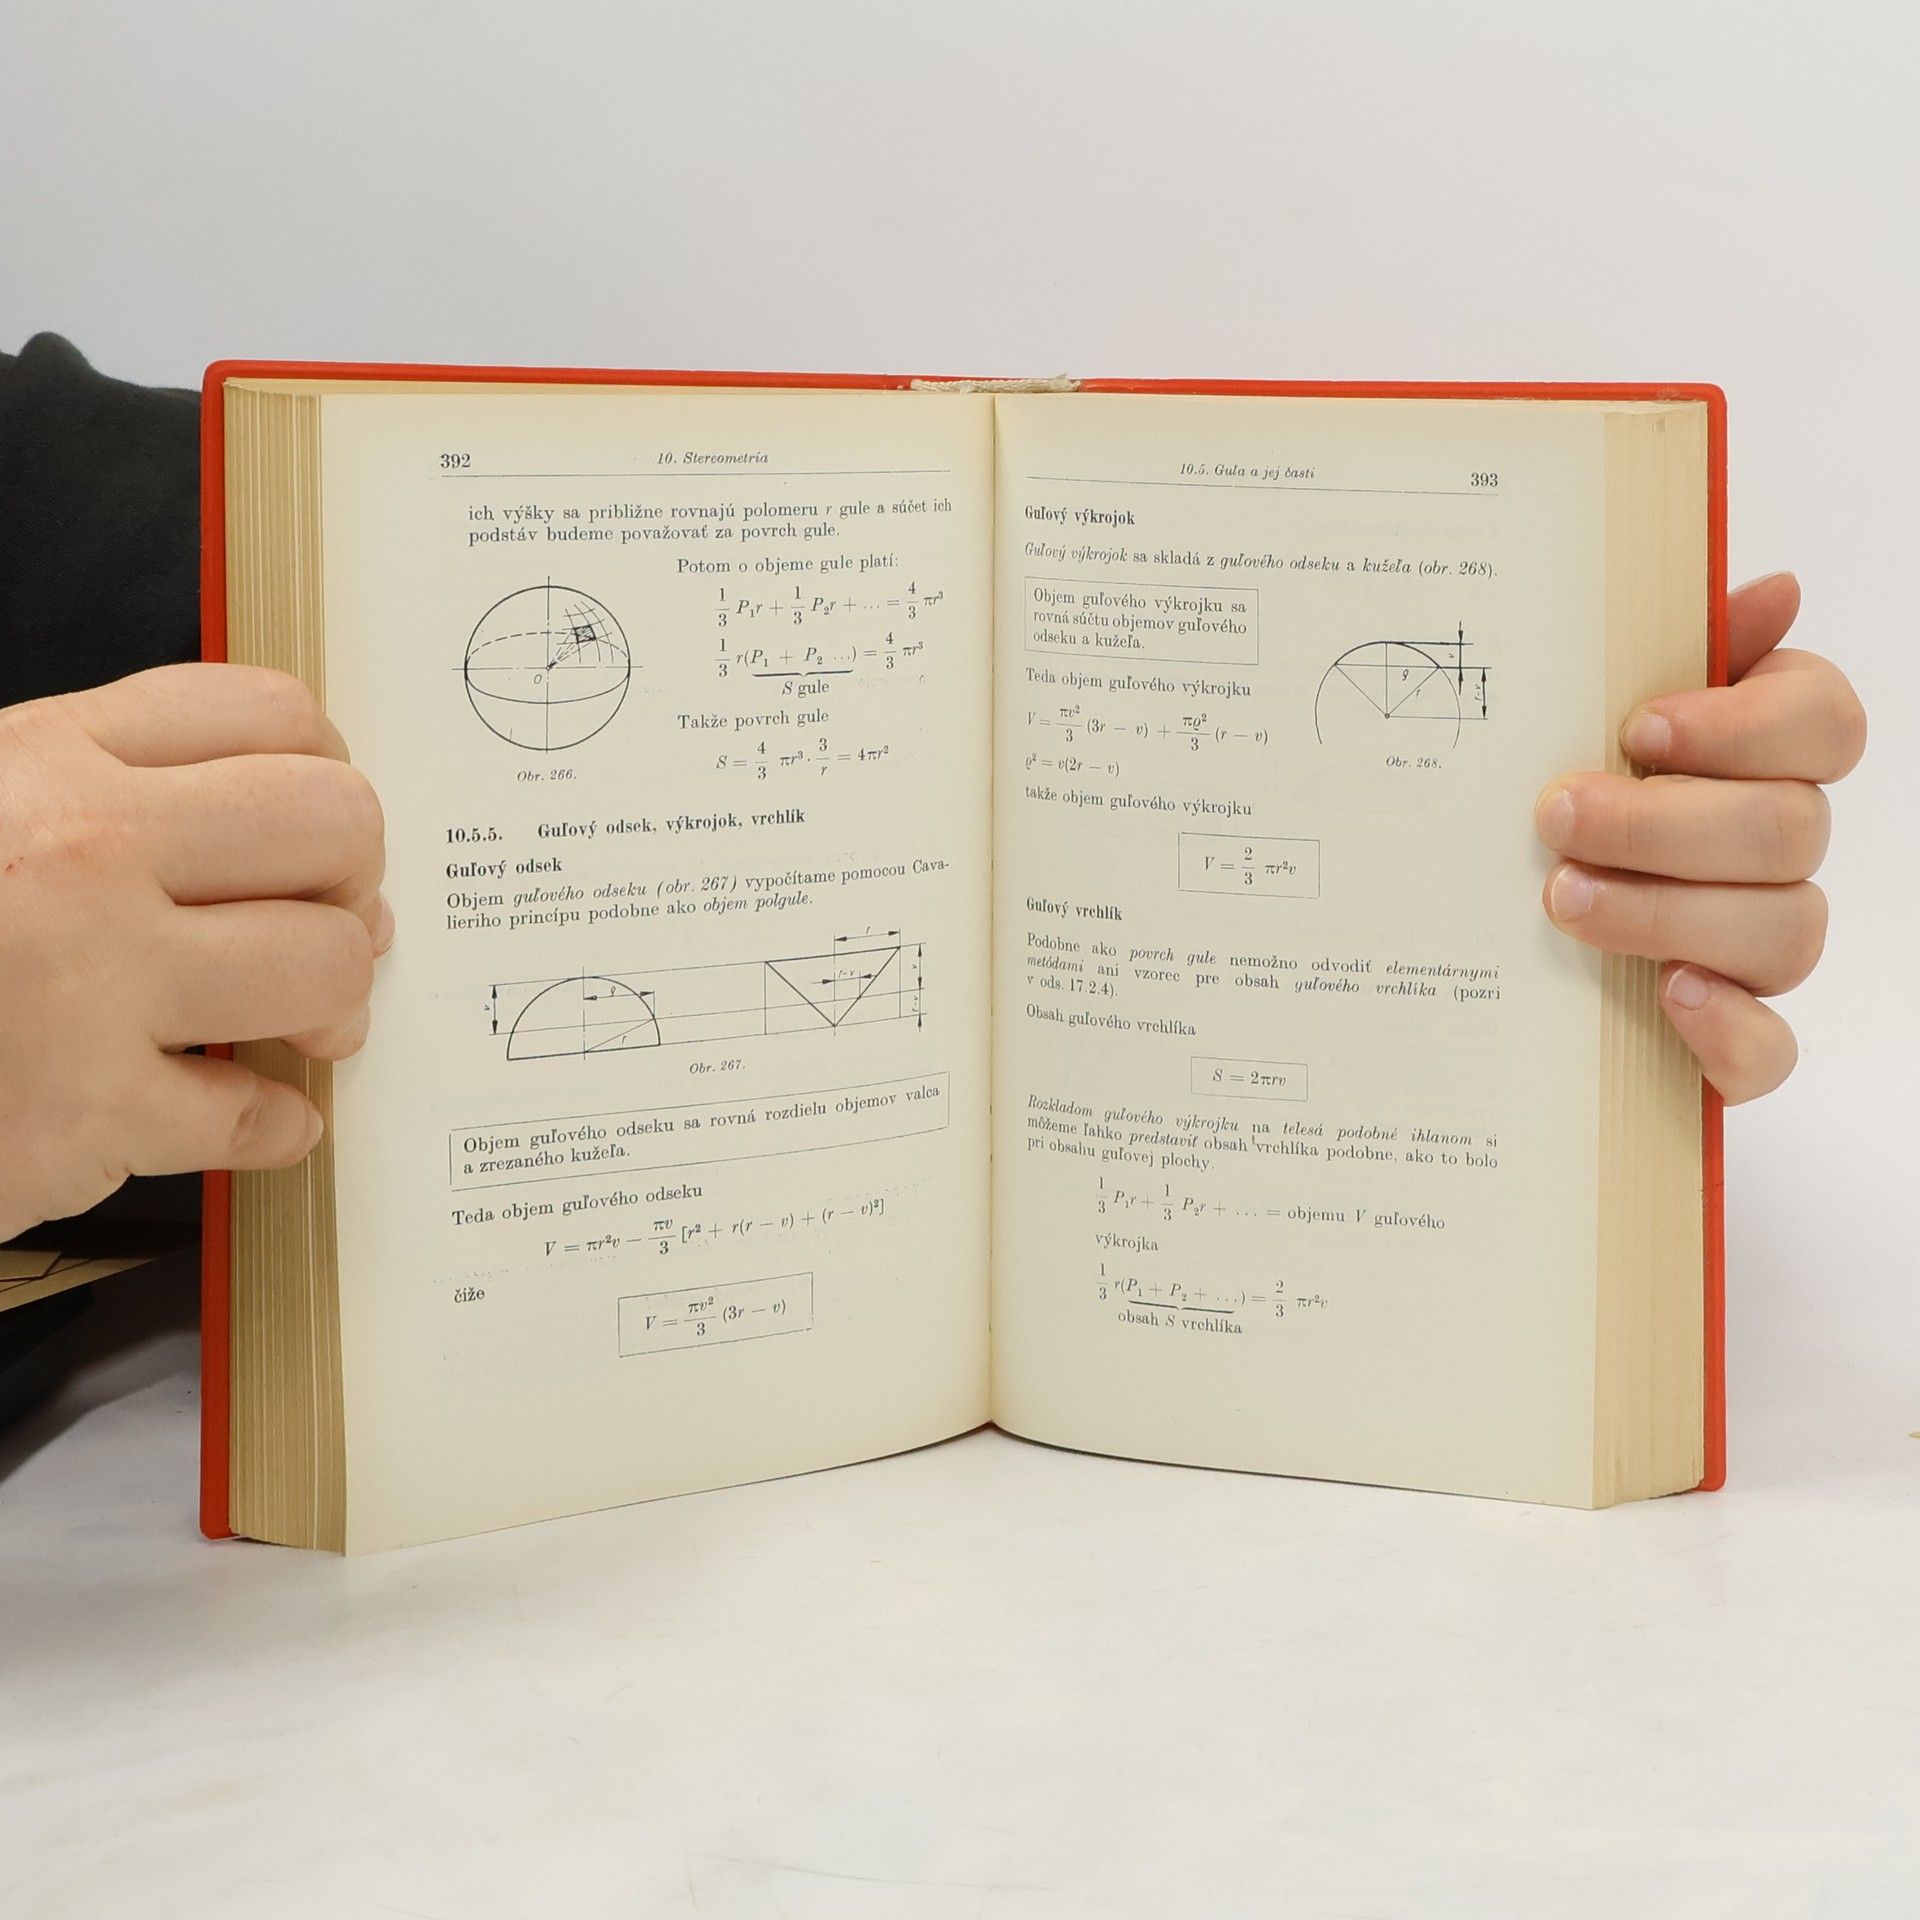 392
10. Stereometria
ich výšky sa približne rovnajú polomeru r gule a súčet ich
podstáv budeme považovať za povrch gule.
Potom o objeme gule platí:
1/3 P₁r + 1/3 P₂r + ... = 4/3 πr³
1/3 r(P₁ + P₂ ...) = 4/3 πr³
S gule
O
Takže povrch gule
S = 4/3 πr³ · 3/r = 4πr²
Obr. 266.
10.5.5. Guľový odsek, výkrojok, vrchlík
Guľový odsek
Objem guľového odseku (obr. 267) vypočítame pomocou Cava-
lieriho princípu podobne ako objem polgule.
r
v ϱ r-v v
r r-v
Obr. 267.
Objem guľového odseku sa rovná rozdielu objemov valca
a zrezaného kužeľa.
Teda objem guľového odseku
V = πr²v − πv/3 [r² + r(r − v) + (r − v)²]
čiže
V = πv²/3 (3r − v)
10.5. Guľa a jej časti
393
Guľový výkrojok
Guľový výkrojok sa skladá z guľového odseku a kužeľa (obr. 268).
Objem guľového výkrojku sa
rovná súčtu objemov guľového
odseku a kužeľa.
Teda objem guľového výkrojku
V = πv²/3 (3r − v) + πϱ²/3 (r − v)
ϱ² = v(2r − v)
v
ϱ
r
r-v
Obr. 268.
takže objem guľového výkrojku
V = 2/3 πr²v
Guľový vrchlík
Podobne ako povrch gule nemožno odvodiť elementárnymi
metódami ani vzorec pre obsah guľového vrchlíka (pozri
v ods. 17.2.4).
Obsah guľového vrchlíka
S = 2πrv
Rozkladom guľového výkrojku na telesá podobné ihlanom si
môžeme ľahko predstaviť obsah vrchlíka podobne, ako to bolo
pri obsahu guľovej plochy.
1/3 P₁r + 1/3 P₂r + ... = objemu V guľového
výkrojka
1/3 r(P₁ + P₂ + ...) = 2/3 πr²v
obsah S vrchlíka